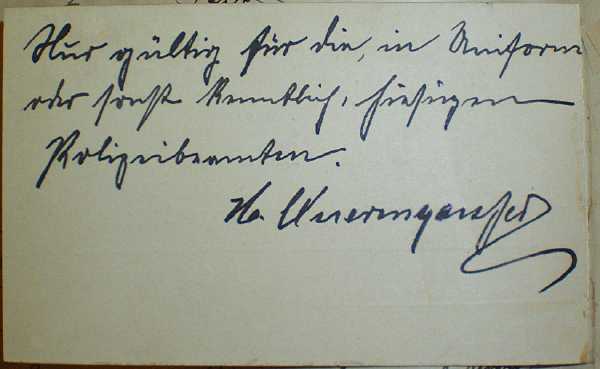 Nur gültig für die, in Uniform
oder sonst kenntlich, hiesigen
Polizeibeamten.